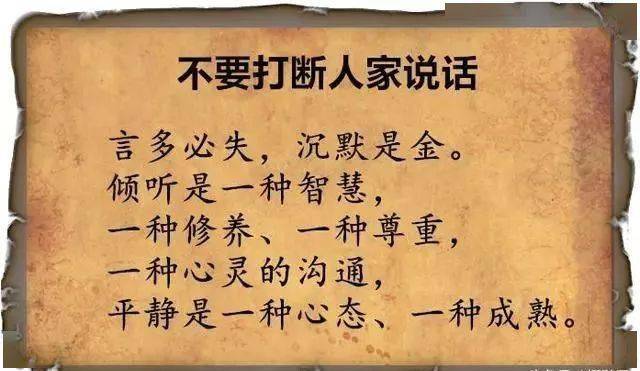 不要打断人家说话
言多必失，沉默是金。
倾听是一种智慧，
一种修养、一种尊重，
一种心灵的沟通，
平静是一种心态、一种成熟。